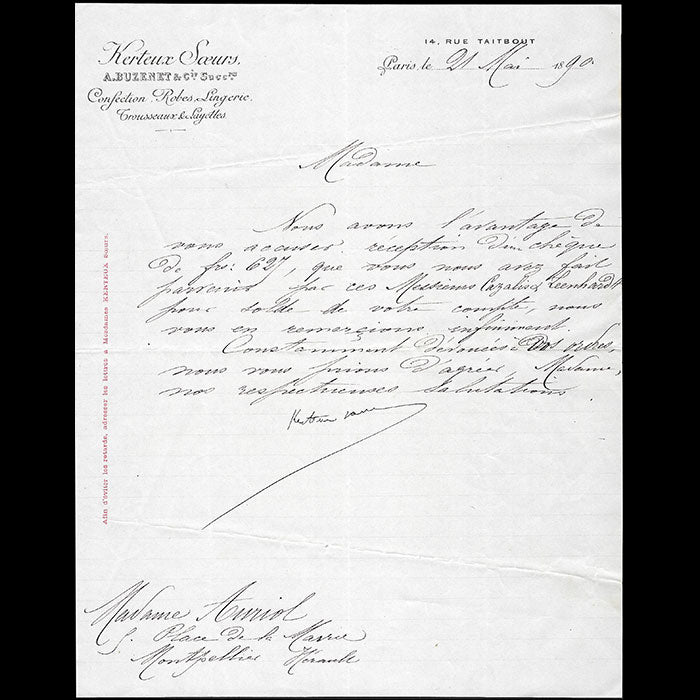 14, RUE TAITBOUT
Kerteux Sœurs,
A. BUZENET & Cie Succrs
Confection, Robes, Lingerie.
Trousseaux & Layettes
Paris, le 21 Mai 1890.
Madame
Nous avons l'avantage de
vous accuser reception d'un chèque
de frs: 627, que vous nous avez fait
parvenir par ces Messieurs Cazalis & Leenhardt
pour solde de votre compte, nous
vous en remerçions infiniment.
Constamment dévouées à vos ordres,
nous vous prions d'agréer, Madame,
nos respectueuses salutations
Kerteux
Afin d'éviter les retards, adresser les lettres à Mesdames KERTEUX Sœurs.
Madame Auriol
5. Place de la Mairie
Montpellier Hérault